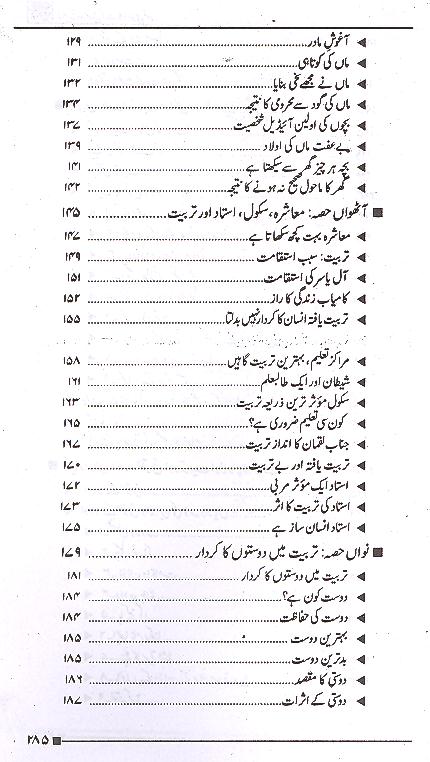 آغوشِ مادر ۱۲۹
ماں کی کوتاہی ۱۳۱
ماں نے مجھے سخی بنایا ۱۳۲
ماں کی گود سے محرومی کا نتیجہ ۱۳۴
بچوں کی اولین آئیڈیل شخصیت ۱۳۷
بے عفت ماں کی اولاد ۱۳۹
بچہ ہر چیز گھر سے سیکھتا ہے ۱۴۱
گھر کا ماحول صحیح نہ ہونے کا نتیجہ ۱۴۲
آٹھواں حصہ: معاشرہ، سکول، استاد اور تربیت ۱۴۵
معاشرہ بہت کچھ سکھاتا ہے ۱۴۷
تربیت؛ سببِ استقامت ۱۴۹
آل یاسر کی استقامت ۱۵۱
کامیاب زندگی کا راز ۱۵۲
تربیت یافتہ انسان کا کردار نہیں بدلتا ۱۵۵
مراکز تعلیم، بہترین تربیت گاہیں ۱۵۸
شیطان اور ایک طالبعلم ۱۶۱
سکول مؤثر ترین ذریعہ تربیت ۱۶۳
کون سی تعلیم ضروری ہے؟ ۱۶۵
جناب لقمان کا انداز تربیت ۱۶۷
تربیت یافتہ اور بے تربیت ۱۷۰
استاد ایک مؤثر مربی ۱۷۲
استاد کی تربیت کا اثر ۱۷۳
استاد انسان ساز ہے ۱۷۵
نواں حصہ: تربیت میں دوستوں کا کردار ۱۷۹
تربیت میں دوستوں کا کردار ۱۸۱
دوست کون ہے؟ ۱۸۴
دوست کی حفاظت ۱۸۴
بہترین دوست ۱۸۵
بدترین دوست ۱۸۵
دوستی کا مقصد ۱۸۶
دوستی کے اثرات ۱۸۷
۲۸۵